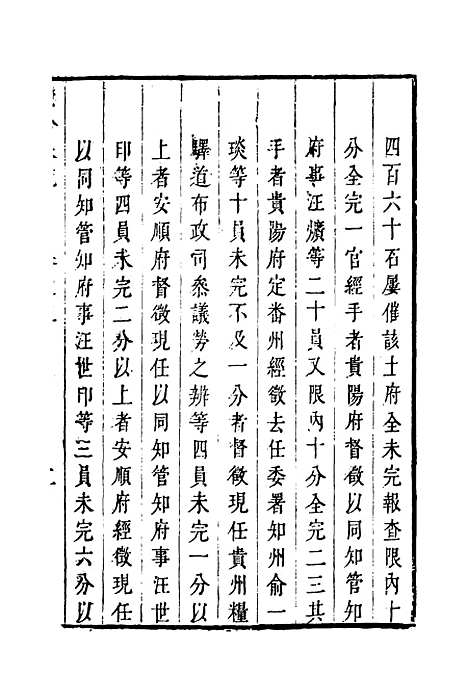 四百六十石屢催該土府全未完報查限內十
分全完一官經手者貴陽府督徵以同知管知
府事汪爌等二十員又限內十分全完二三其
手者貴陽府定番州經徵去任委署知州俞一
琰等十員未完不及一分者督徵現任貴州糧
驛道布政司叅議勞之辨等四員未完一分以
上者安順府督徵現任以同知管知府事汪世
印等四員未完二分以上者安順府經徵現任
以同知管知府事汪世印等三員未完六分以